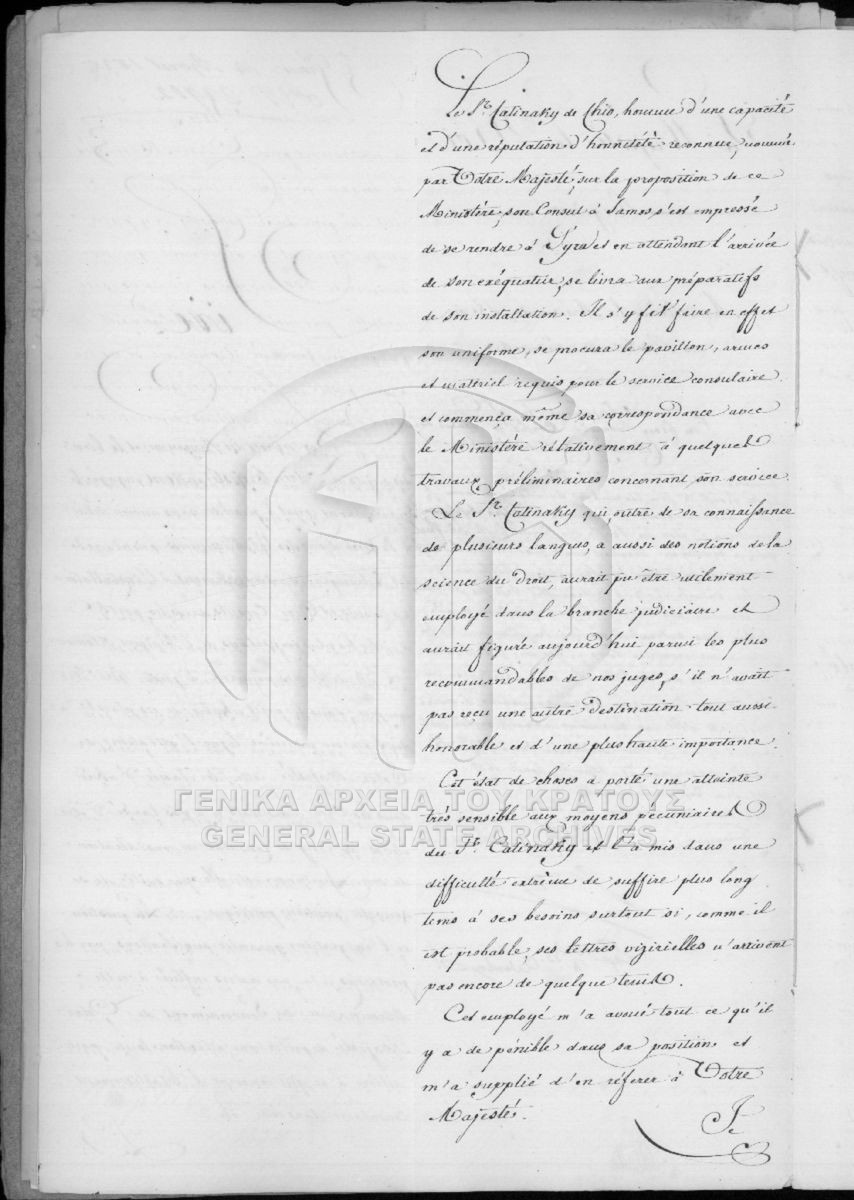 Le Sr. Calinaky de Chio, homme d'une capacité
et d'une réputation d'honnêtété reconnue, nommé
par Votre Majesté, sur la proposition de ce
Ministère, son Consul à Samos s'est empressé
de se rendre à Syra et en attendant l'arrivée
de son exéquatur, se livra aux préparatifs
de son installation. Il s'y fit faire en effet
son uniforme, se procura le pavillon, armes
et matériel requis pour le service consulaire
et commença même sa correspondance avec
le Ministère relativement à quelques
travaux préliminaires concernant son service.
Le Sr. Calinaky qui, outre de sa connaissance
de plusieurs langues, a aussi des notions de la
science du Droit, aurait pu être utilement
employé dans la branche judiciaire et
aurait figuré aujourd'hui parmi les plus
recommandables de nos juges, s'il n'avait
pas reçu une autre destination tout aussi
honorable et d'une plus haute importance.
Cet état de choses a porté une atteinte
très sensible aux moyens pécuniaires
du Sr. Calinaky et l'a mis dans une
difficulté extrême de suffire plus long
tems à ses besoins surtout si, comme il
est probable, ses lettres vizirielles n'arrivent
pas encore de quelque tems.
Cet employé m'a avoué tout ce qu'il
y a de pénible dans sa position et
m'a supplié d'en référer à Votre
Majesté.
Je
ΓΕΝΙΚΑ ΑΡΧΕΙΑ ΤΟΥ ΚΡΑΤΟΥΣ
GENERAL STATE ARCHIVES